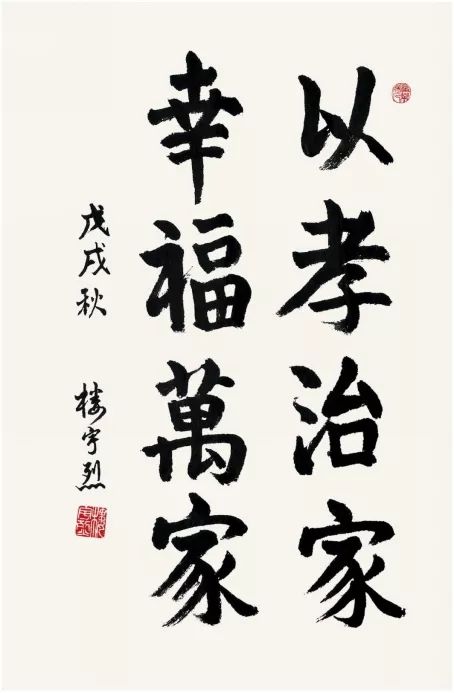 以孝治家
幸福萬家
戊戌秋 楼宇烈